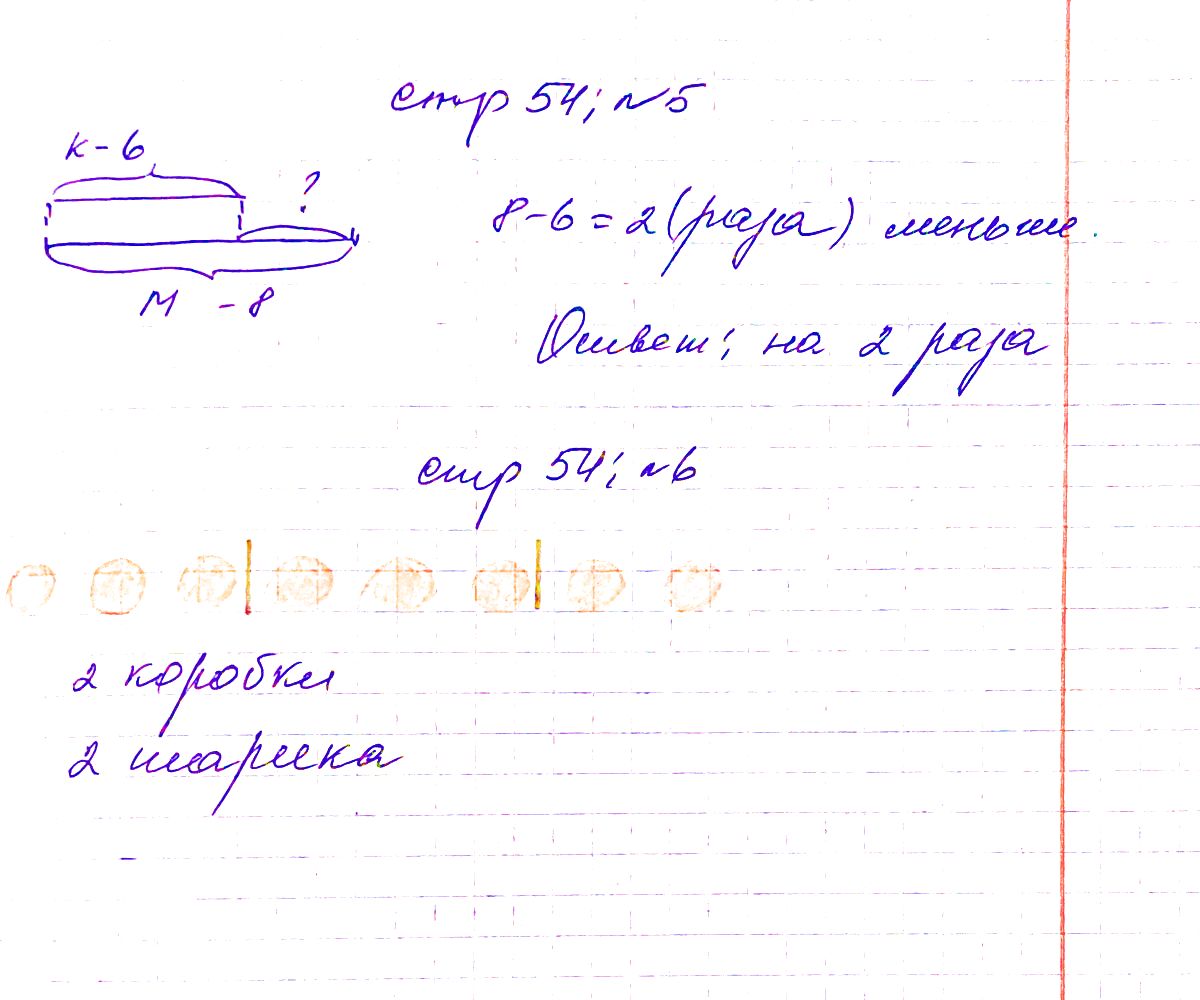 стр 54; №5
к - 6
?
8-6 = 2 (раза) меньше.
М - 8
Ответ: на 2 раза
стр 54; №6
2 коробки
2 шарика